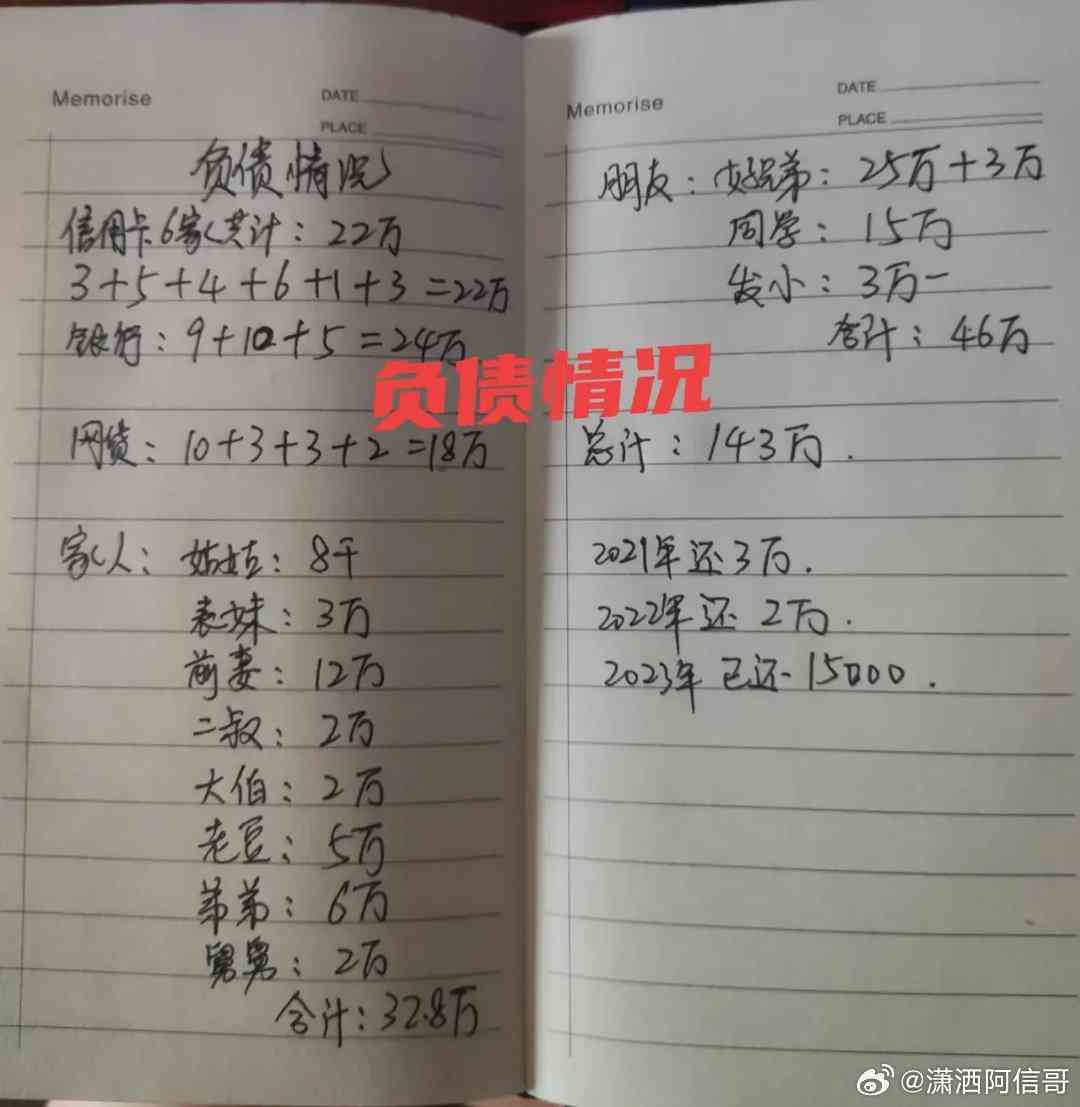 Memorise
DATE
PLACE
负债情况
信用卡6家共计：22万
3+5+4+6+1+3=22万
银行：9+10+5=24万
网贷：10+3+3+2=18万
家人：姑姑：8千
表妹：3万
前妻：12万
二叔：2万
大伯：2万
老豆：5万
弟弟：6万
舅舅：2万
合计：32.8万
负债情况
Memorise
DATE
PLACE
朋友：好兄弟：25万+3万
同学：15万
发小：3万
合计：46万
总计：143万.
2021年还3万.
2022年还2万.
2023年已还15000.
@潇洒阿信哥